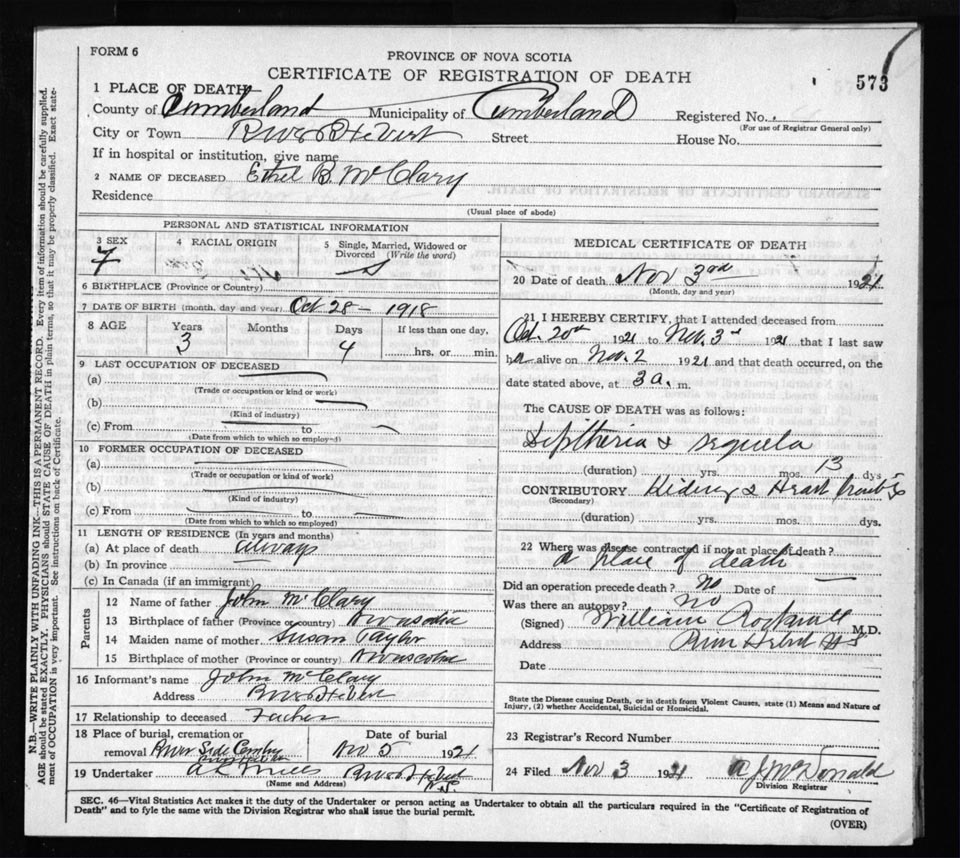 FORM 6
PROVINCE OF NOVA SCOTIA
CERTIFICATE OF REGISTRATION OF DEATH
573
1 PLACE OF DEATH
County of Cumberland Municipality of Cumberland Registered No.
(For use of Registrar General only)
City or Town River Hebert Street House No.
If in hospital or institution, give name
2 NAME OF DECEASED Ethel B. McClary
Residence
(Usual place of abode)
PERSONAL AND STATISTICAL INFORMATION
3 SEX F
4 RACIAL ORIGIN
5 Single, Married, Widowed or Divorced (Write the word) S
6 BIRTHPLACE (Province or Country)
7 DATE OF BIRTH (month, day and year) Oct 28 - 1918
8 AGE Years Months Days If less than one day,
3 4 hrs. or min.
9 LAST OCCUPATION OF DECEASED
(a)
(Trade or occupation or kind or work)
(b)
(Kind of industry)
(c) From to
(Date from which to which so employed)
10 FORMER OCCUPATION OF DECEASED
(a)
(Trade or occupation or kind of work)
(b)
(Kind of industry)
(c) From to
(Date from which to which so employed)
11 LENGTH OF RESIDENCE (In years and months)
(a) At place of death always
(b) In province
(c) In Canada (if an immigrant)
Parents
12 Name of father John McClary
13 Birthplace of father (Province or country)
14 Maiden name of mother Susan Taylor
15 Birthplace of mother (Province or country)
16 Informant's name John McClary
Address River Hebert
17 Relationship to deceased Father
18 Place of burial, cremation or removal River Side
Date of burial Nov 5 1921
19 Undertaker River Hebert N.S.
(Name and Address)
MEDICAL CERTIFICATE OF DEATH
20 Date of death Nov 3rd 1921
(Month, day and year)
21 I HEREBY CERTIFY, that I attended deceased from
Oct. 20th 1921 to Nov. 3rd 1921 that I last saw
h alive on Nov. 2 1921 and that death occurred, on the
date stated above, at 3 a. m.
The CAUSE OF DEATH was as follows:
Diptheria & sequela
(duration) yrs. mos. 13 dys
CONTRIBUTORY Kidney & Heart
(Secondary)
(duration) yrs. mos. dys.
22 Where was disease contracted if not at place of death?
place of death
Did an operation precede death? no Date of
Was there an autopsy? no
(Signed) William Rockwell M.D.
Address River Hebert NS
Date
State the Disease causing Death, or in death from Violent Causes, state (1) Means and Nature of
Injury, (2) whether Accidental, Suicidal or Homicidal.
23 Registrar's Record Number
24 Filed Nov 3 1921 McDonald
Division Registrar
SEC. 46—Vital Statistics Act makes it the duty of the Undertaker or person acting as Undertaker to obtain all the particulars required in the "Certificate of Registration of
Death" and to fyle the same with the Division Registrar who shall issue the burial permit.
(OVER)
N.B.—WRITE PLAINLY WITH UNFADING INK—THIS IS A PERMANENT RECORD. Every item of information should be carefully supplied.
AGE should be stated EXACTLY. PHYSICIANS should STATE CAUSE OF DEATH in plain terms, so that it may be properly classified. Exact state-
ment of OCCUPATION is very important. See instructions on back of Certificate.